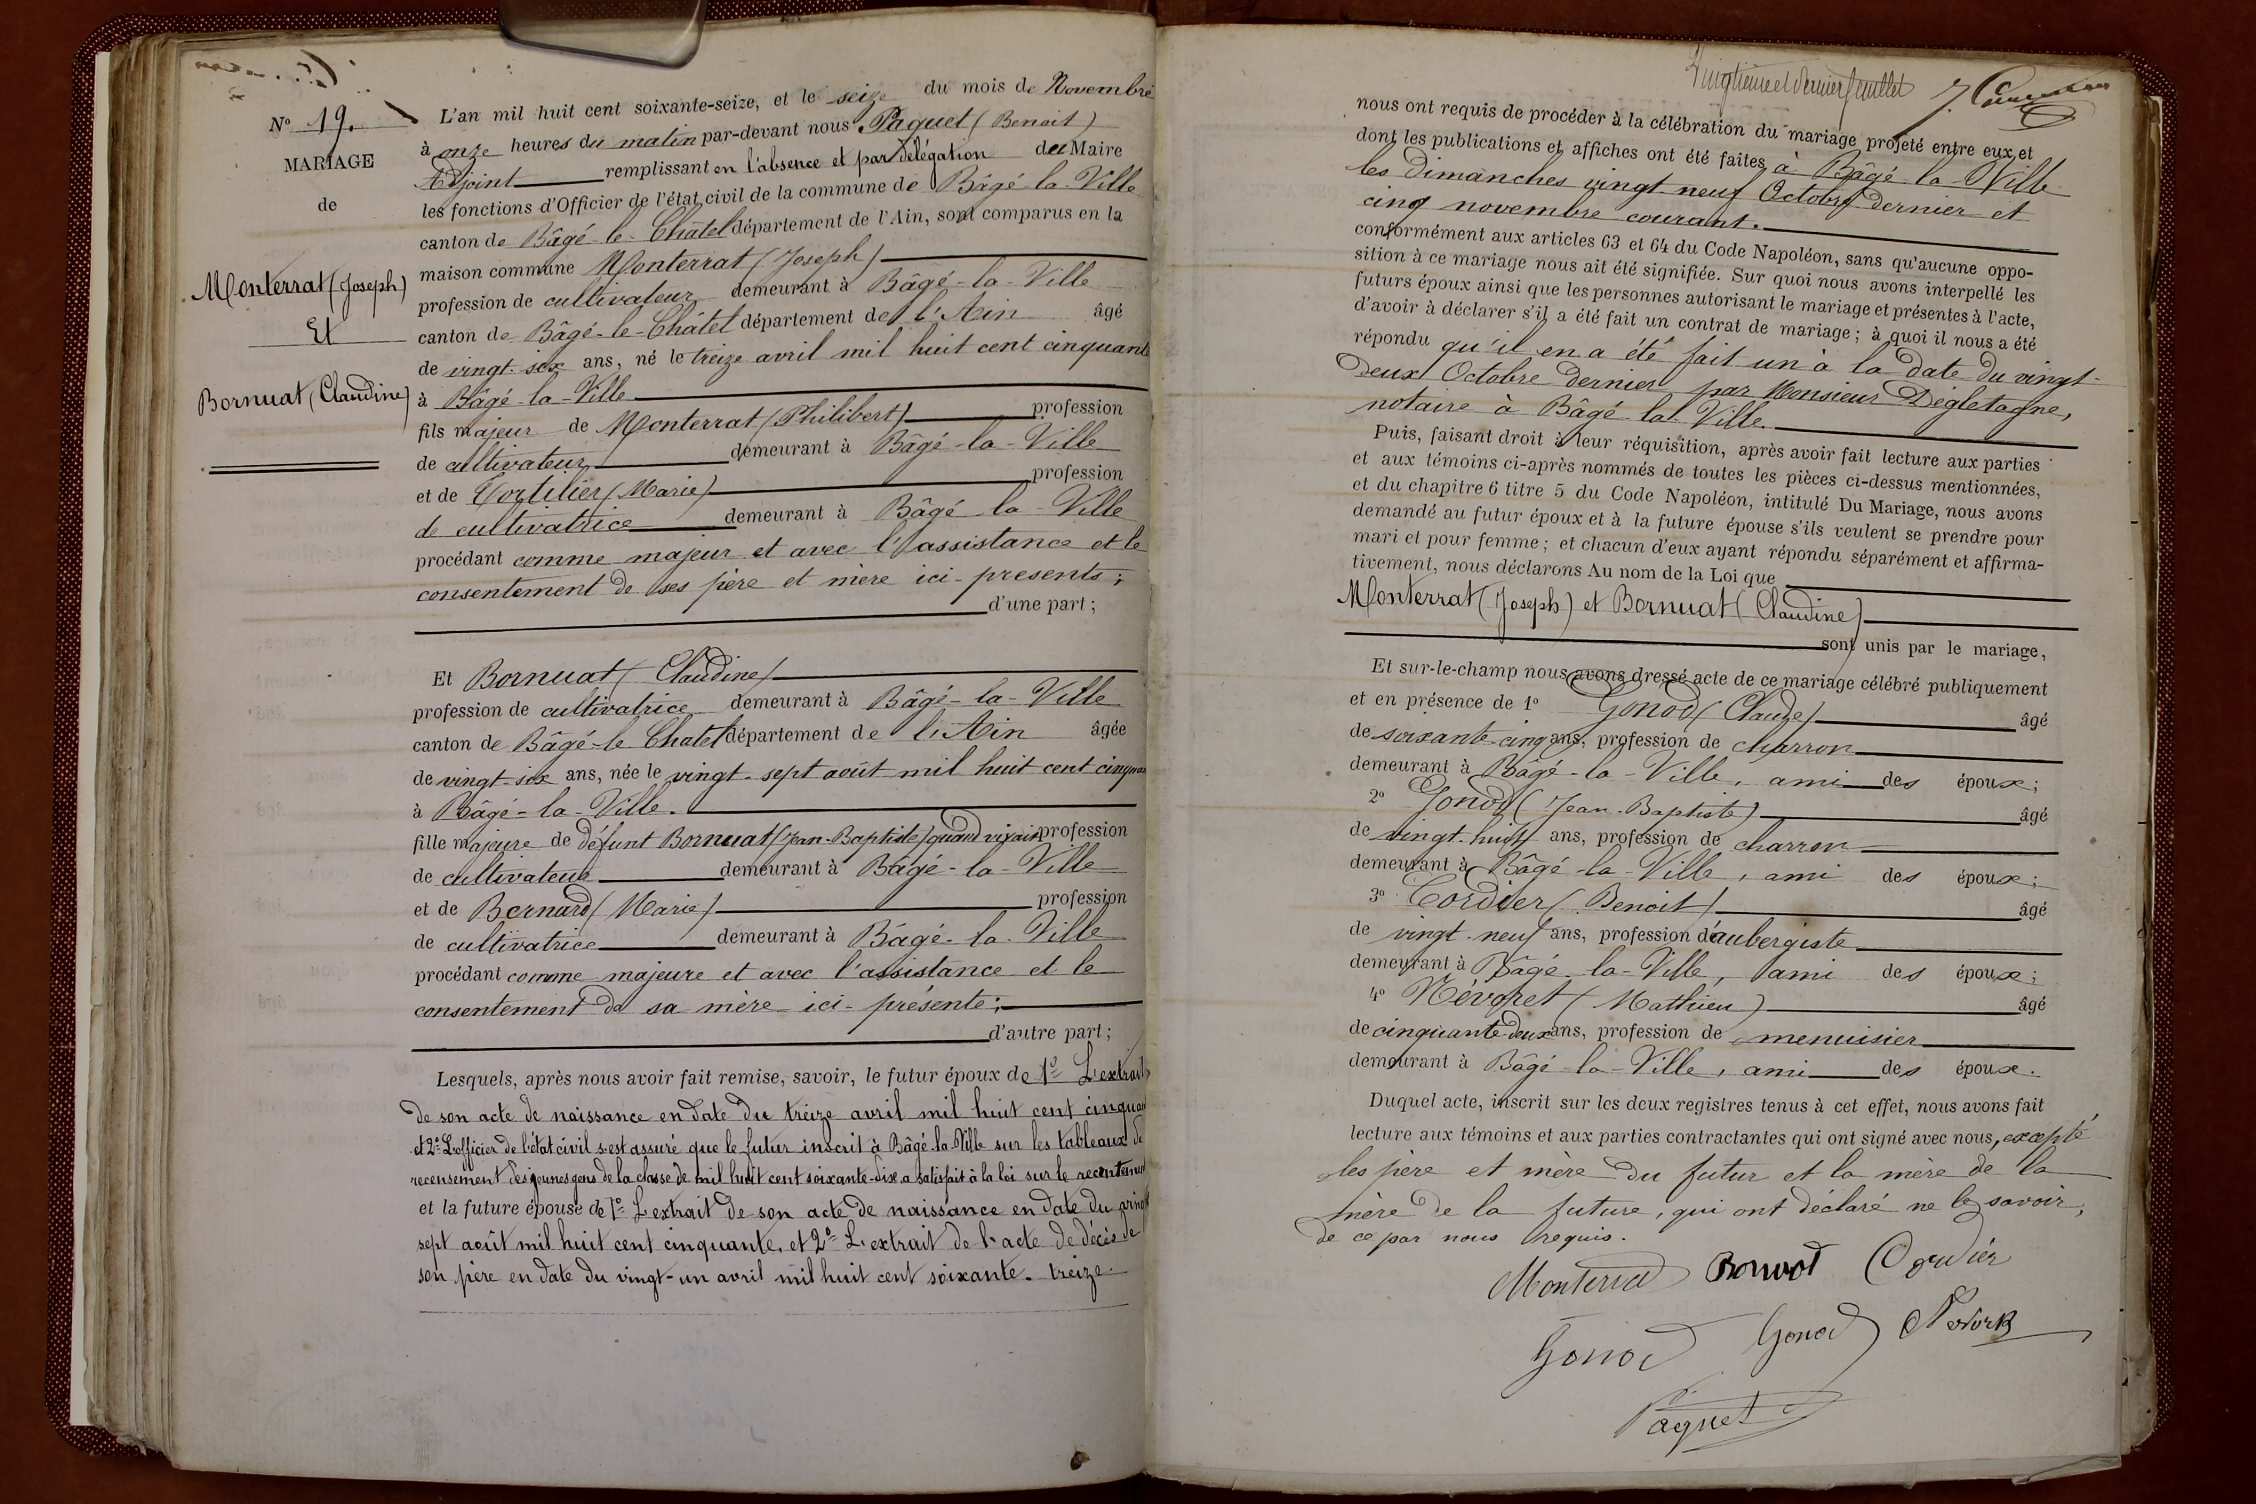 Nº 19.
MARIAGE
de
Monterrat (Joseph)
Et
Bornuat (Claudine)
L'an mil huit cent soixante-seize, et le seize du mois de Novembre
à onze heures du matin par-devant nous Paquet (Benoit)
Adjoint remplissant en l'absence et par délégation du Maire
les fonctions d'Officier de l'état civil de la commune de Bâgé-la-Ville
canton de Bâgé-le-Châtel département de l'Ain, sont comparus en la
maison commune Monterrat (Joseph)
profession de cultivateur demeurant à Bâgé-la-Ville
canton de Bâgé-le-Châtel département de l'Ain âgé
de vingt-six ans, né le treize avril mil huit cent cinquante
à Bâgé-la-Ville
fils majeur de Monterrat (Philibert) profession
de cultivateur demeurant à Bâgé-la-Ville
et de Tortilier (Marie) profession
de cultivatrice demeurant à Bâgé la-Ville
procédant comme majeur et avec l'assistance et le
consentement de ses père et mère ici-présents;
d'une part;
Et Bornuat (Claudine)
profession de cultivatrice demeurant à Bâgé-la-Ville
canton de Bâgé-le Chatel département de l'Ain âgée
de vingt-six ans, née le vingt-sept août mil huit cent cinquan
à Bâgé-la-Ville.
fille majeure de défunt Bornuat (Jean-Baptiste) quand vivait profession
de cultivateur demeurant à Bâgé-la-Ville
et de Bernard (Marie) profession
de cultivatrice demeurant à Bâgé-la-Ville
procédant comme majeure et avec l'assistance et le
consentement de sa mère ici-présente;
d'autre part;
Lesquels, après nous avoir fait remise, savoir, le futur époux de 1º L'extrait
de son acte de naissance en date du treize avril mil huit cent cinquan
et 2º L'officier de l'état civil s'est assuré que le futur inscrit à Bâgé-la-Ville sur les tableaux de
recensement des jeunes gens de la classe de mil huit cent soixante-dix a satisfait à la loi sur le recensement
et la future épouse de 1º L'extrait de son acte de naissance en date du vingt
sept août mil huit cent cinquante, et 2º L'extrait de l'acte de décès de
son père en date du vingt-un avril mil huit cent soixante-treize
Vingtième et dernier feuillet
nous ont requis de procéder à la célébration du mariage projeté entre eux, et
dont les publications et affiches ont été faites à Bâgé-la-Ville
les dimanches vingt neuf Octobre dernier et
cinq novembre courant.
conformément aux articles 63 et 64 du Code Napoléon, sans qu'aucune oppo-
sition à ce mariage nous ait été signifiée. Sur quoi nous avons interpellé les
futurs époux ainsi que les personnes autorisant le mariage et présentes à l'acte,
d'avoir à déclarer s'il a été fait un contrat de mariage; à quoi il nous a été
répondu qu'il en a été fait un à la date du vingt-
deux Octobre dernier par Monsieur Dégletagne,
notaire à Bâgé-la-Ville.
Puis, faisant droit à leur réquisition, après avoir fait lecture aux parties
et aux témoins ci-après nommés de toutes les pièces ci-dessus mentionnées,
et du chapitre 6 titre 5 du Code Napoléon, intitulé Du Mariage, nous avons
demandé au futur époux et à la future épouse s'ils veulent se prendre pour
mari et pour femme; et chacun d'eux ayant répondu séparément et affirma-
tivement, nous déclarons Au nom de la Loi que
Monterrat (Joseph) et Bornuat (Claudine)
sont unis par le mariage,
Et sur-le-champ nous avons dressé acte de ce mariage célébré publiquement
et en présence de 1º Gonod (Claude) âgé
de soixante-cinq ans, profession de charron
demeurant à Bâgé-la-Ville, ami des époux;
2º Gonod (Jean-Baptiste) âgé
de vingt-huit ans, profession de charron
demeurant à Bâgé-la-Ville, ami des époux;
3º Cordier (Benoit) âgé
de vingt-neuf ans, profession d'aubergiste
demeurant à Bâgé-la-Ville, ami des époux;
4º Névoret (Matthieu) âgé
de cinquante-deux ans, profession de menuisier
demeurant à Bâgé-la-Ville, ami des époux.
Duquel acte, inscrit sur les deux registres tenus à cet effet, nous avons fait
lecture aux témoins et aux parties contractantes qui ont signé avec nous, excepté
les père et mère du futur et la mère de la
mère de la future, qui ont déclaré ne le savoir,
de ce par nous requis.
Monterrat Bornuat Cordier
Gonod Gonod
Paquet